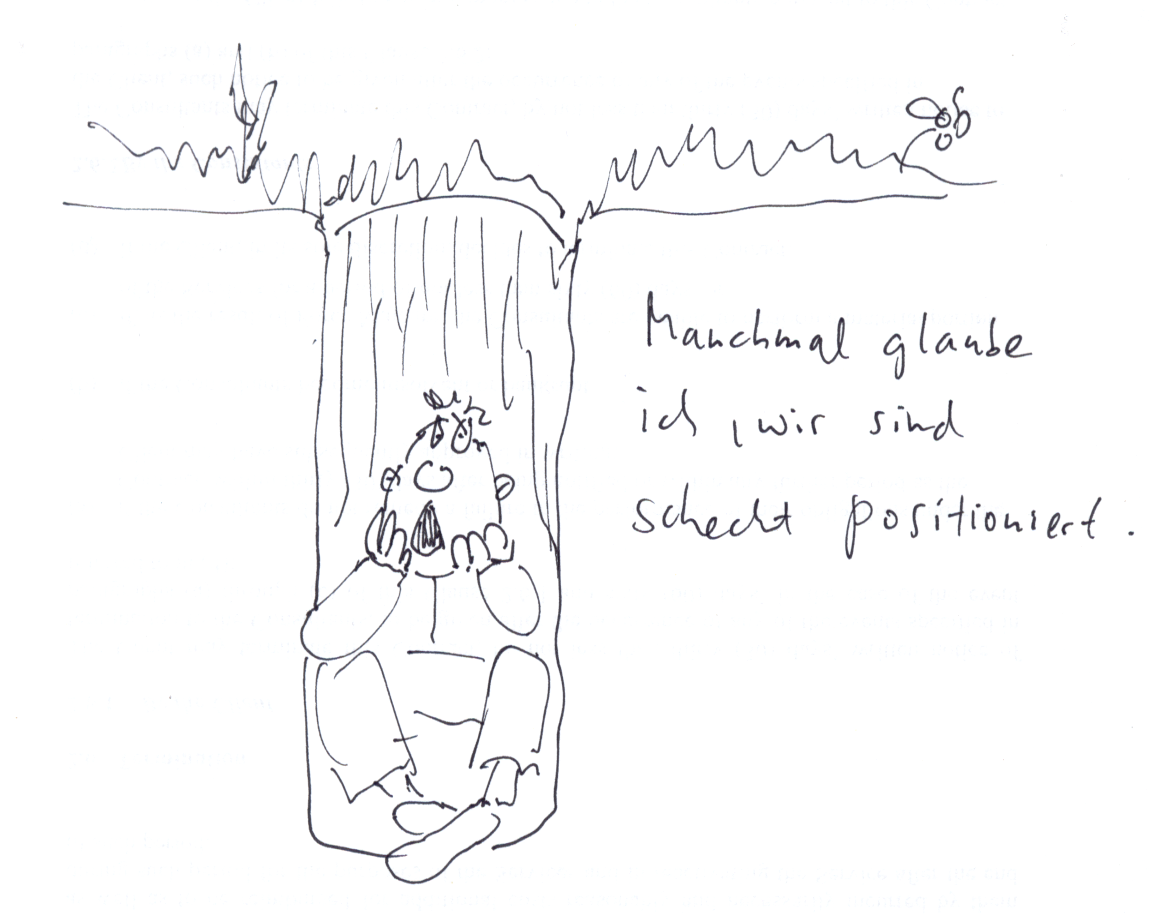 Manchmal glaube
ich, wir sind
schecht positioniert.